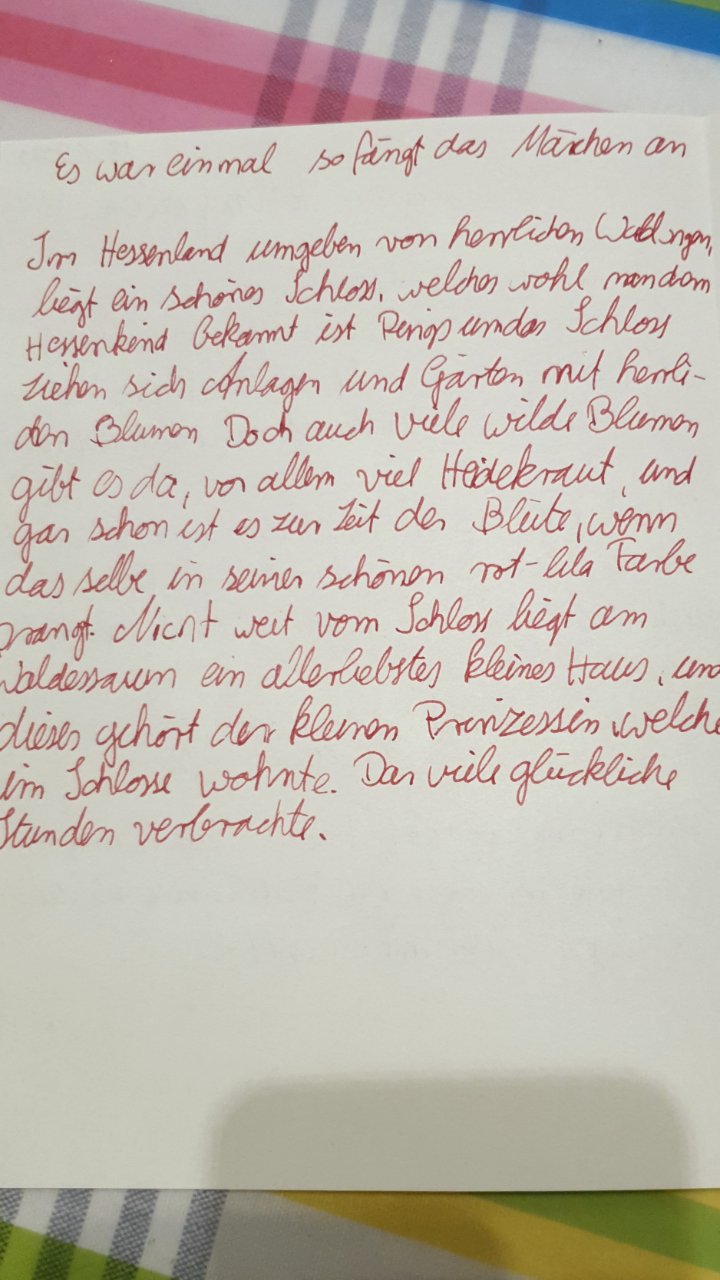 Es war einmal so fängt das Märchen an
Im Hessenland umgeben von herrlichen Waldungen,
liegt ein schönes Schloss, welches wohl manchem
Hessenkind bekannt ist Rings um das Schloss
ziehen sich Anlagen und Gärten mit herrli-
chen Blumen Doch auch viele wilde Blumen
gibt es da, vor allem viel Heidekraut, und
gar schon ist es zur Zeit der Blüte, wenn
das selbe in seiner schönen rot-lila Farbe
prangt. Nicht weit vom Schloss liegt am
Waldessaum ein allerliebstes kleines Haus, und
dieses gehört der kleinen Prinzessin, welche
im Schlosse wohnte. Das viele glückliche
Stunden verbrachte.